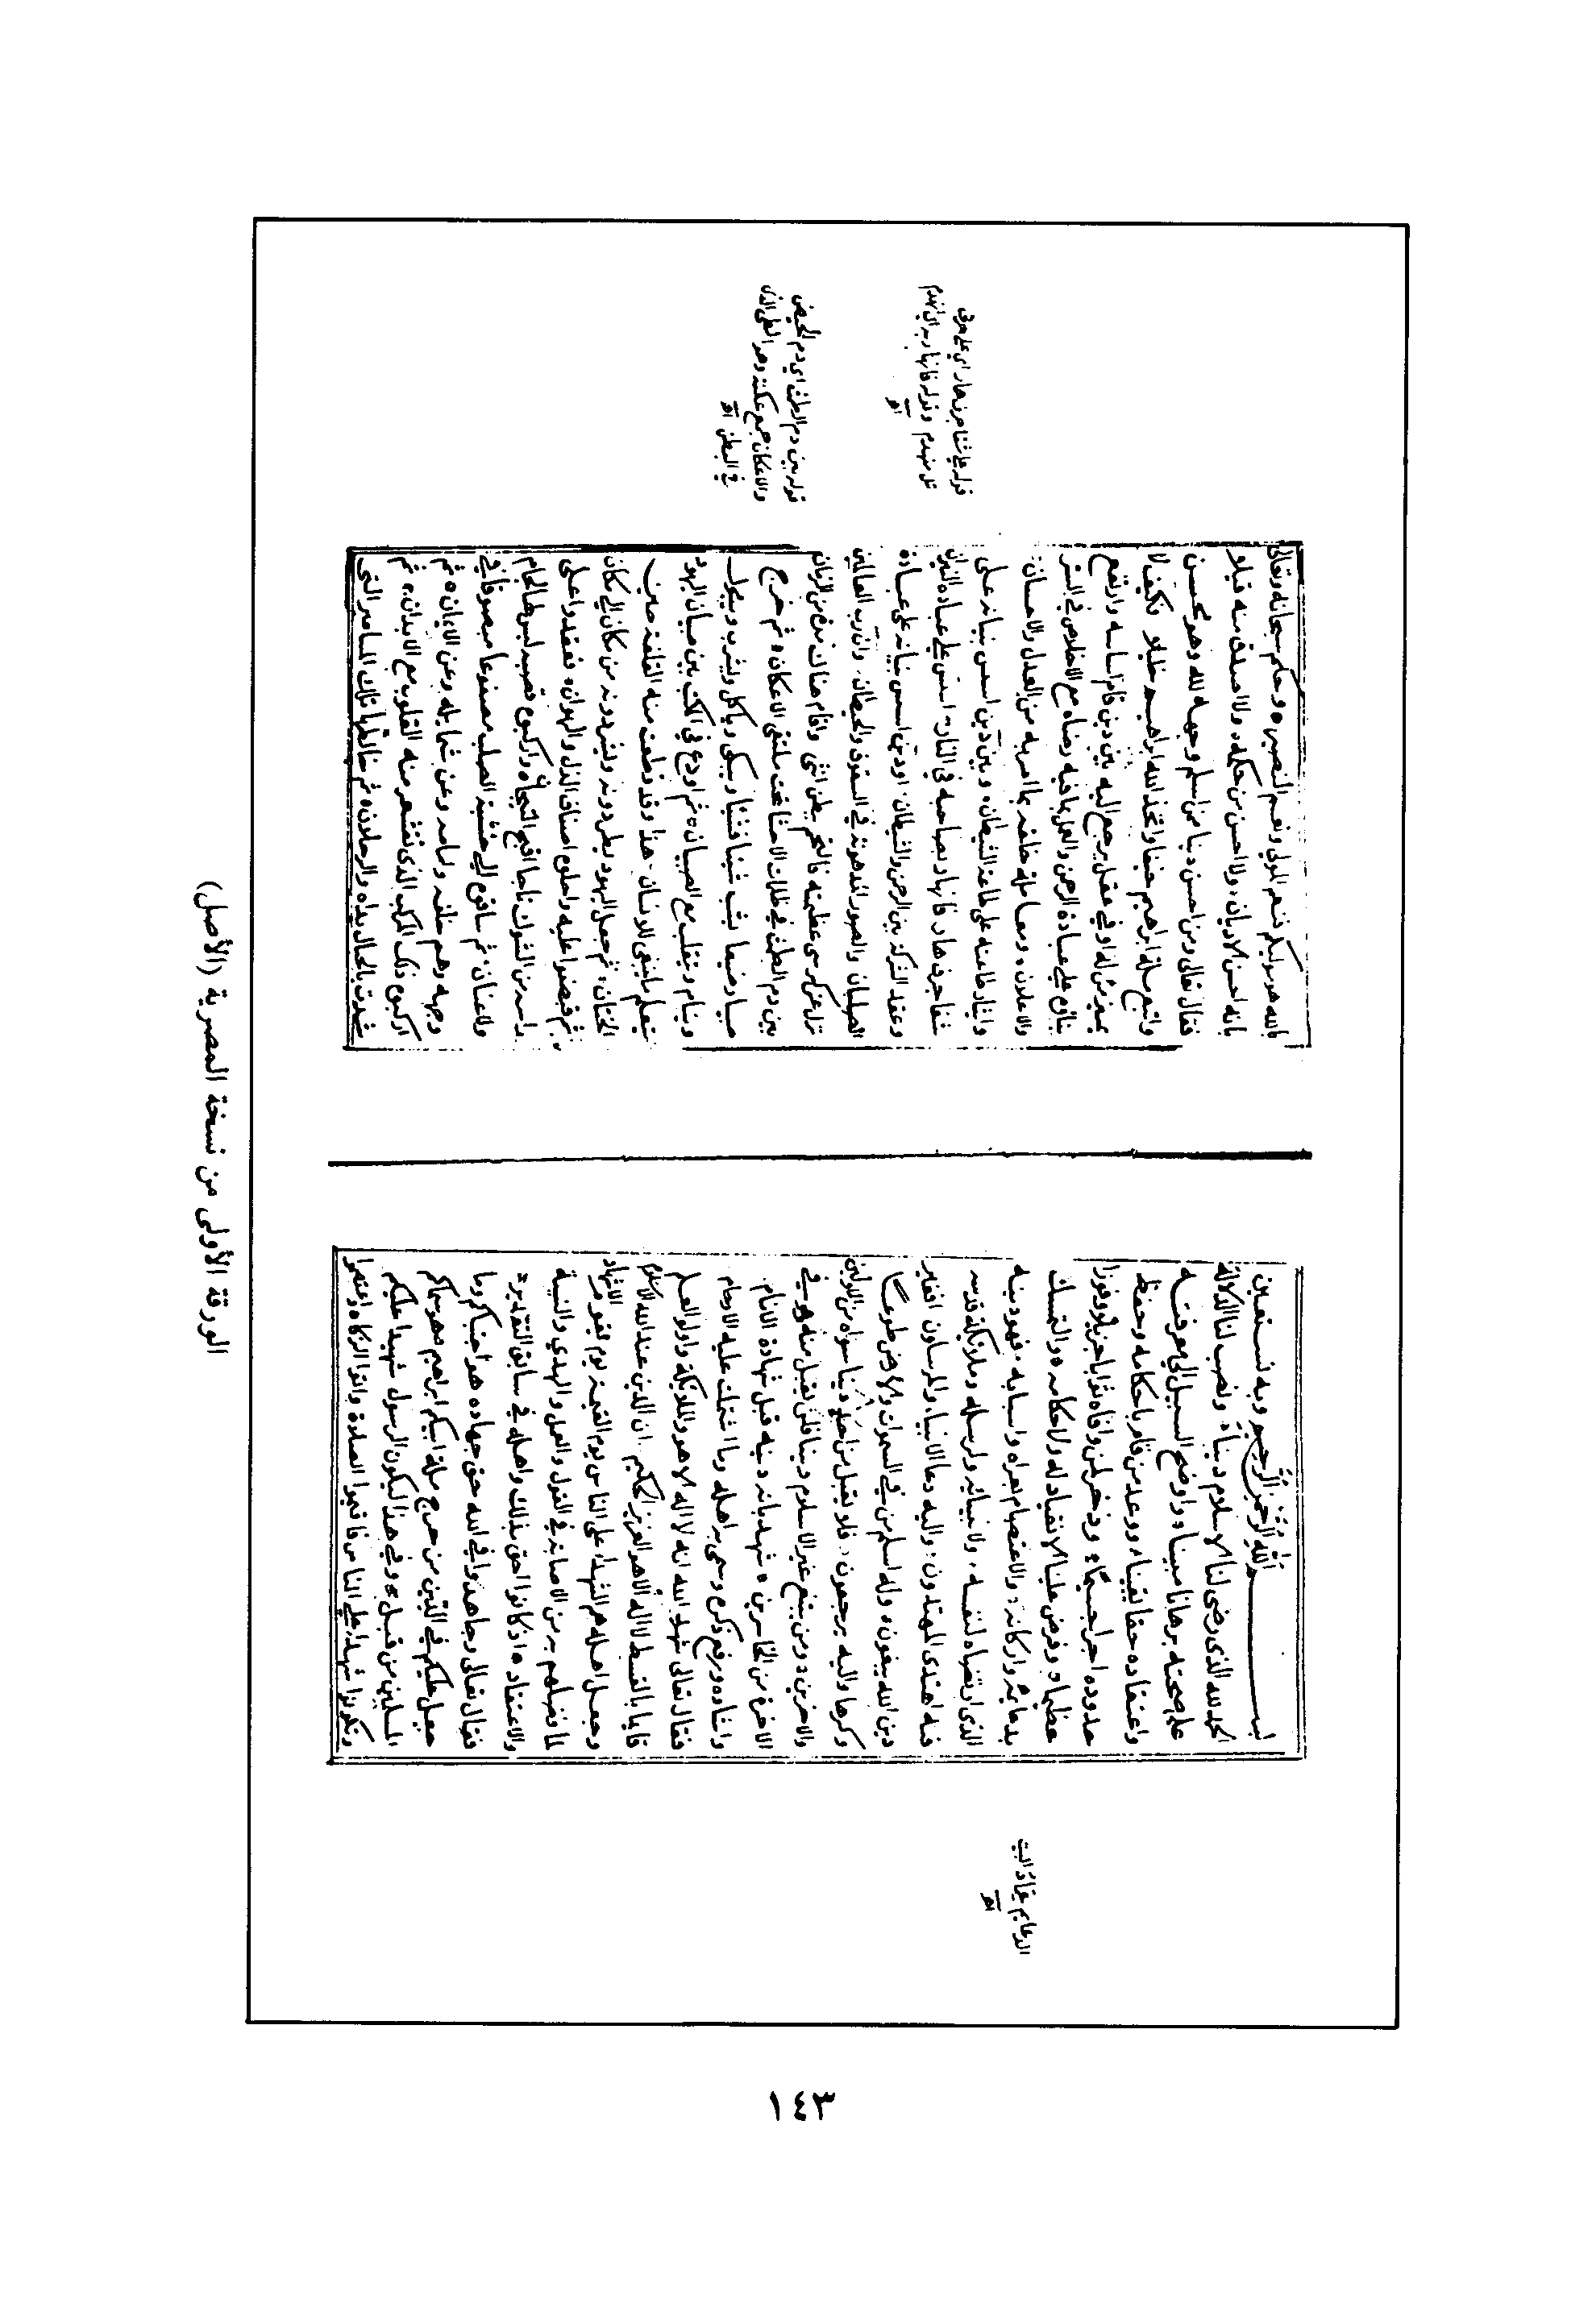 بسم الله الرحمن الرحيم وبه نستعين
الحمد لله الذي رضي لنا الاسلام دينا، ونصب لنا الدلالة
على صحته برهانا مبينا، واوضح السبيل الى معرفته
واعتقاده حقا يقينا، ووعد من قام باحكامه وحفظ
حدوده اجرا جسيما، وذخر لمن وافاه ثوابا جزيلا وفوزا
عظيما، وفرض علينا الانقياد له ولاحكامه، والتمسك
بدعائمه واركانه، والاعتصام بعراه واسبابه، فهو دينه
الذي ارتضاه لنفسه، ولانبيائه ولرسله وملائكة قدسه
فبه اهتدى المهتدون، واليه دعا الانبياء والمرسلون افغير
دين الله يبغون، وله اسلم من في السموات والارض طوعا
وكرها واليه يرجعون، فلا يقبل من احد دينا سواه من الاولين
والاخرين، ومن يبتغ غير الاسلام دينا فلن يقبل منه وهو في
الاخرة من الخاسرين، شهد بانه دينه قبل شهادة الانام
واشاده ورفع ذكره وسمى به اهله وما اشتملت عليه الارحام
فقال تعالى شهد الله انه لا اله الا هو والملائكة واولوا العلم
قايما بالقسط لا اله الا هو العزيز الحكيم. ان الدين عند الله الاسلام
وجعل اهله هم الشهداء على الناس يوم القيمة يوم يقوم الاشهاد
لما فضلهم به من الاصابة في القول والعمل والهدي والنية
والاعتقاد، اذ كانوا احق بذلك واهله في سابق التقدير،
فقال تعالى وجاهدوا في الله حق جهاده هو اجتباكم وما
جعل عليكم في الدين من حرج ملة ابيكم ابراهيم هو سماكم
المسلمين من قبل وفي هذا ليكون الرسول شهيدا عليكم
وتكونوا شهداء على الناس فاقيموا الصلاة واتوا الزكاه واعتصموا
الدعايم عماد البيت
اهـ
بالله هو موليكم فنعم المولى ونعم النصير، وحكم سبحانه وتعالى
بانه احسن الاديان، ولا احسن من حكمه، ولا اصدق منه قيلا
فقال تعالى ومن احسن دينا ممن اسلم وجهه لله وهو محسن
واتبع ملة ابراهيم حنيفا واتخذ الله ابراهيم خليلا وكيف لا
يميز من له ادنى عقل يرجع اليه بين دين قام اساسه وارتفع
بناؤه على عبادة الرحمن والعمل بما يحبه ويرضاه مع الاخلاص في السر
والاعلان، ومعاملة خلقه بما امر به من العدل والاحسان،
وايثار طاعته على طاعة الشيطان، وبين دين اسس بنيانه على
شفا جرف هار فانهار بصاحبه في النار، اسس على عبادة النيران
وعقد الشركة بين الرحمن والشيطان، او دين اسس بنيانه على عبادة
الصلبان والصور المدهونة في السقوف والحيطان، وان رب العالمين
نزل عن كرسي عظمته فالتحم ببطن انثى واقام هناك مدة من الزمان
بين دم الطمث في ظلمات الاحشا تحت ملتقى الاعكان، ثم خرج
صبيا رضيعا يشب شيئا فشيئا ويبكي وياكل ويشرب ويبول
وينام ويتقلب مع الصبيان، ثم اودع في المكتب بين صبيان اليهود
يتعلم ما ينبغي للانسان، هذا وقد قطعت منه القلفة حين
الختان، ثم جعل اليهود يطردونه ويشردونه من مكان الى مكان
ثم قبضوا عليه واحلوه اصناف الذل والهوان، فعقدوا على
راسه من الشوك تاجا اقبح التيجان، واركبوه قصبة ليس لها لجام
ولا عنان، ثم ساقوه الى خشبة الصلب مصفوعا مبصوقا في
وجهه وهم خلفه وامامه وعن شمايله وعن الايمان، ثم
اركبوه ذلك المركب الذي تقشعر منه القلوب مع الابدان، ثم
شدت بالحبال يداه والرجلان، ثم خالطها تلك المسامير التي
قوله على شفا جرف هار اي على حرف
تل منهدم وقوله فانهار به اي انهدم
اهـ
قوله بين دم الطمث اي دم الحيض
والاعكان جمع عكنة وهو الطي الذي
في البطن اهـ
الورقة الأولى من نسخة المصرية (الأصل)
١٤٣